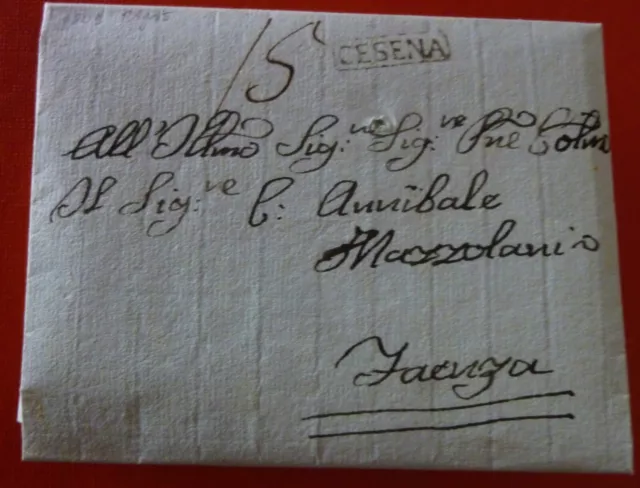 15
CESENA
All' Illmo Sig:re Sig:re Pne Colmo
Il Sig:re C: Annibale
Mazzolani
Faenza